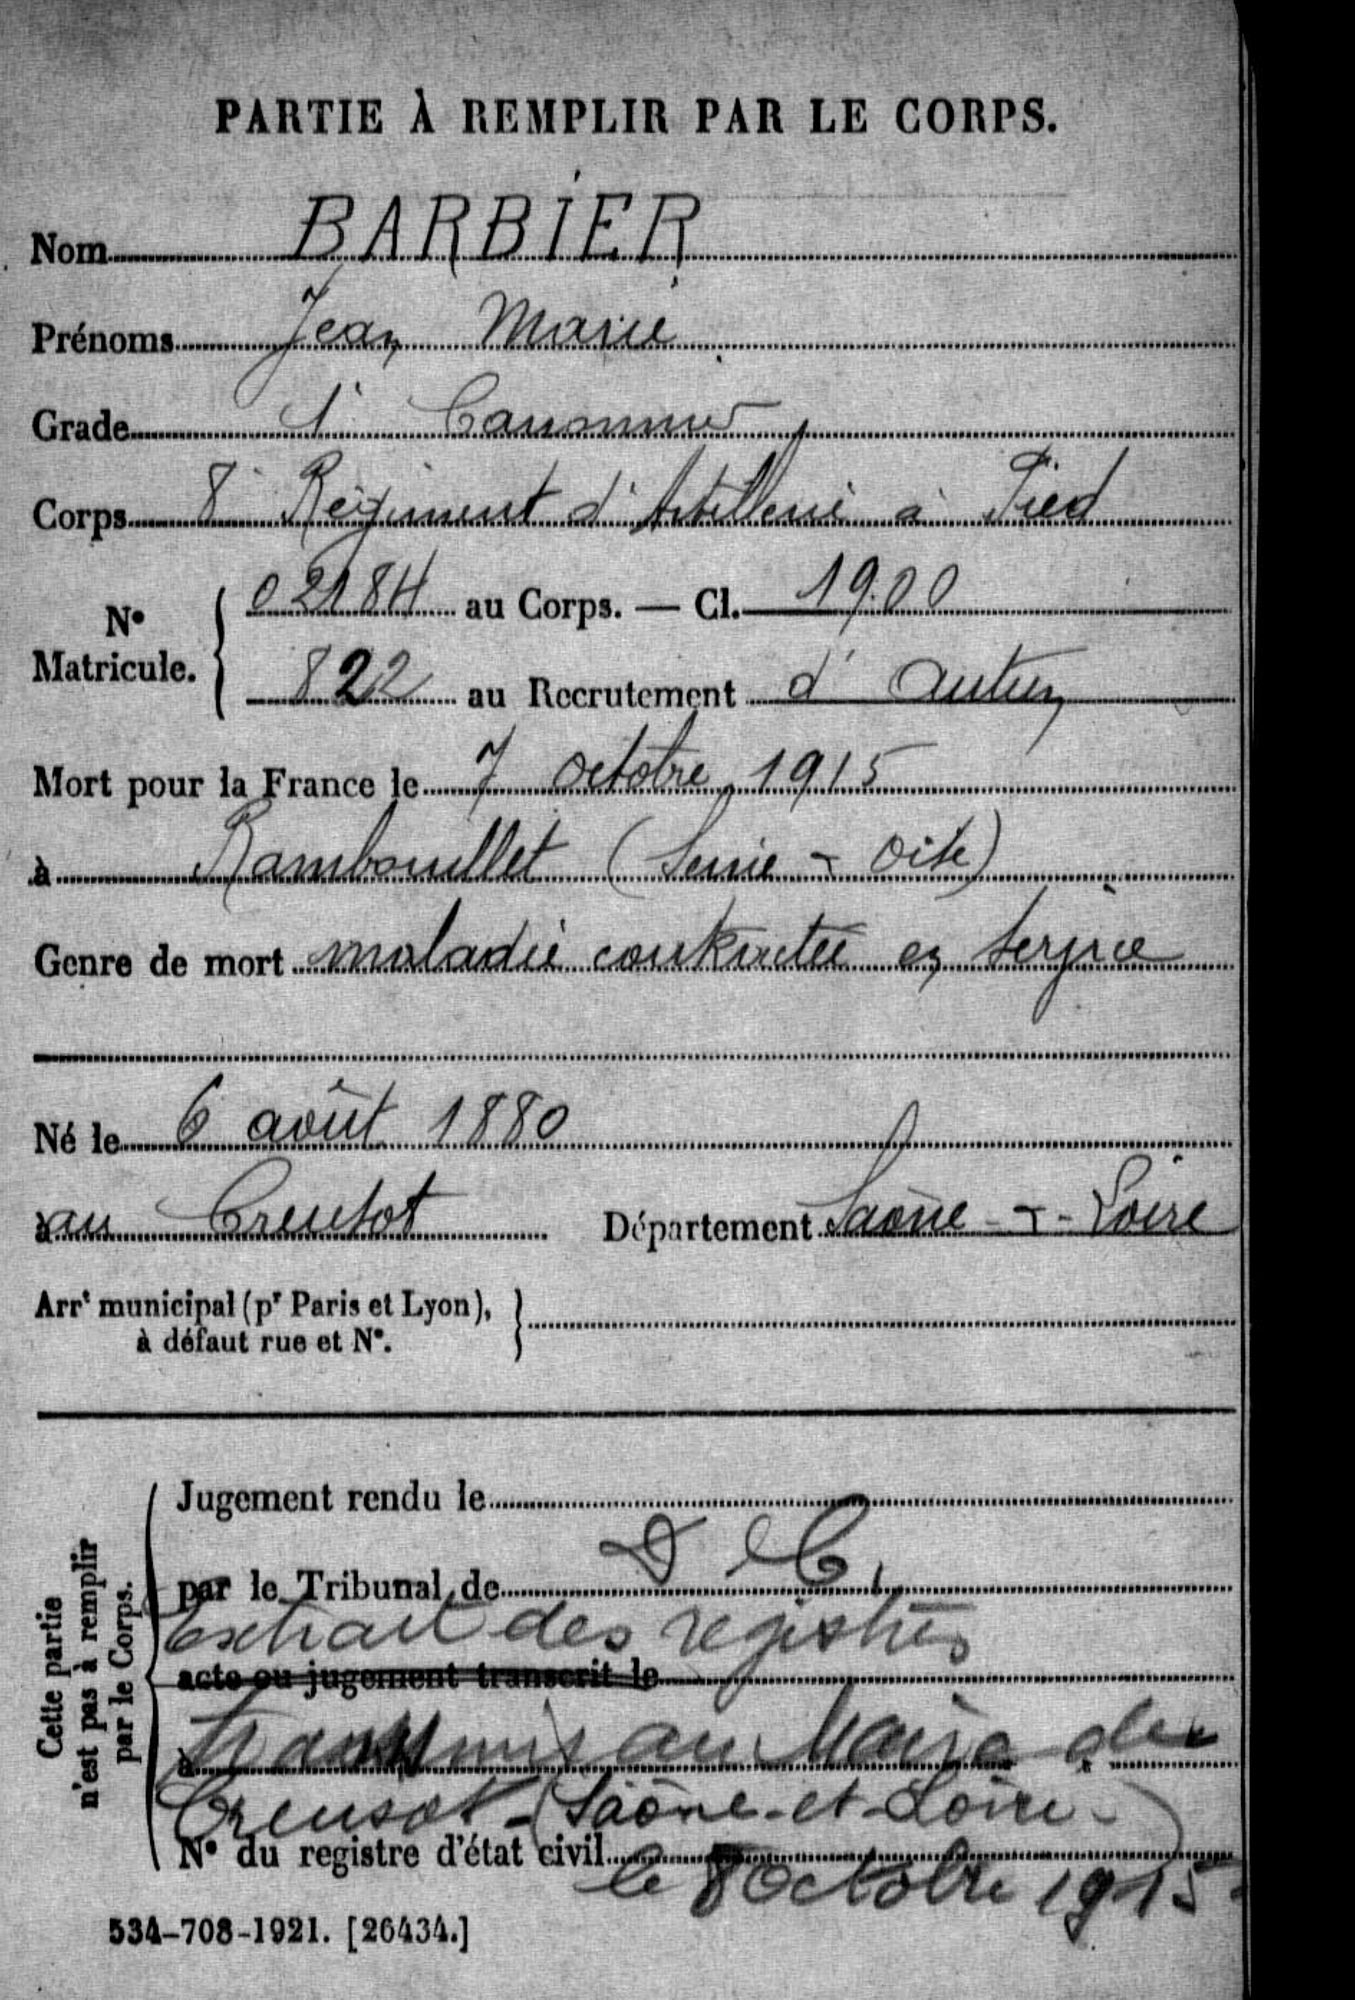 PARTIE À REMPLIR PAR LE CORPS.
Nom BARBIER
Prénoms Jean Marie
Grade 1e Canonnier
Corps 8e Régiment d'Artillerie à Pied
N° Matricule. { 02184 au Corps. — Cl. 1900
822 au Recrutement d'Autun
Mort pour la France le 7 octobre 1915
à Rambouillet (Seine - & - Oise)
Genre de mort maladie contractée en service
Né le 6 août 1880
au Creusot Département Saône - & - Loire
Arrt municipal (pr Paris et Lyon),
à défaut rue et N°.
Cette partie
n'est pas à remplir
par le Corps.
Jugement rendu le
D C,
par le Tribunal de
Extrait des registres
acte ou jugement transcrit le
à transmis au Maire de
Creusot - (Saône-et-Loire)
N° du registre d'état civil
le 8 Octobre 1915
534-708-1921. [26434.]